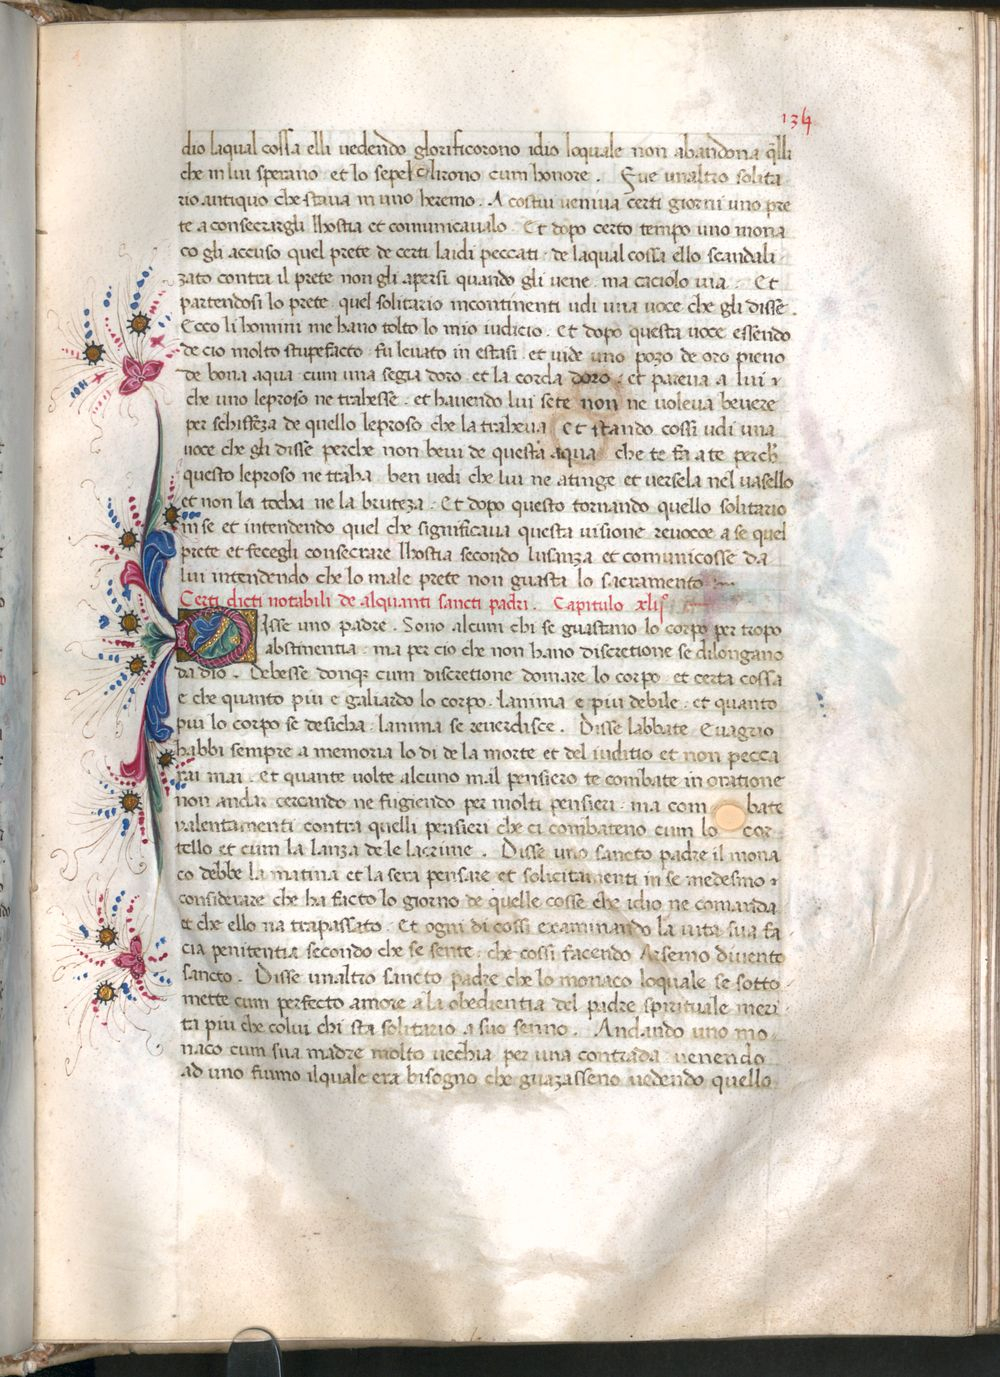 134
dio laqual cossa elli uedendo glorificorono idio loquale non abandona q̃lli
che in lui sperano et lo sepelclirono cum honore . Fue unaltro solita
rio antiquo che staua in uno heremo . A costui veniua certi giorni uno pre
te a consecrargli lhostia et comunicaualo . Et dopo certo tempo uno mona
co gli accuso quel prete de certi laidi peccati · de laqual cossa ello scandali
zato contra il prete non gli apersi quando gli uene · ma caciolo uia . Et
partendosi lo prete quel solitario incontinenti udi una uoce che gli disse .
Ecco li homini me hano tolto lo mio iudicio . Et dopo questa uoce essendo
de cio molto stupefacto · fu leuato in estasi · et uide uno pozo de oro pieno
de bona aqua cum una segia doro · et la corda doro · et pareua a lui
che uno leproso ne trahesse · et hauendo lui sete non ne uoleua beuere
per schiffeza de quello leproso che la traheua Et stando cossi udi una
uoce che gli disse perche non beui de questa aqua che te fa a te perch̃
questo leproso ne traha · ben uedi che lui ne atinge et uersela nel uasello
et non lei tocha ne la bruteza · Et dopo questo tornando quello solitario
in se et intendendo quel che significaua questa uisione reuocce a se quel
prete et fecegli consecrare lhostia secondo lusanza et comunicosse da
lui intendendo che lo male prete non guasta lo sacramento
Certi dicti notabili de alquanti sancti padri . Capitulo xliiº
Disse uno padre . Sono alcuni chi se guastano lo corpo per tropo
abstinentia · ma per cio che non hano discretione se dilongano
da dio . Debesse donq̃ cum discretione domare lo corpo · et certa cossa
e che quanto piu e galiardo lo corpo · lanima e piu debile · et quanto
piu lo corpo se desicha · lanima se reuerdisce . Disse labbate Euagrio
habbi sempre a memoria lo di de la morte et del iuditio et non pecca
rai mai · Et quante uolte alcuno mal pensiero te combate in oratione
non andar cercando ne fugiendo per molti pensieri · ma com bate
ualentamenti contra quelli pensieri che ci combateno cum lo cor
tello et cum la lanza de le lacrime . Disse uno sancto padre il mona
co debbe la matina et la sera pensare et solicitamenti in se medesmo
considerare che ha facto lo giorno de quelle cosse che idio ne comanda
et che ello na trapassato · Et ogni di cossi examinando la uita sua fa
cia penitentia secondo che se sente · che cossi facendo Arsemo diuente
sancto . Disse unaltro sancto padre che lo monaco loquale se sotto
mette cum perfecto amore a la obedientia del padre spirituale meri
ta piu che colui chi sta solitario a suo senno . Andando uno mo
naco cum sua madre molto uechia per una contrada uenendo
ad uno fiumo ilquale era bisogno che guazasseno uedendo quello